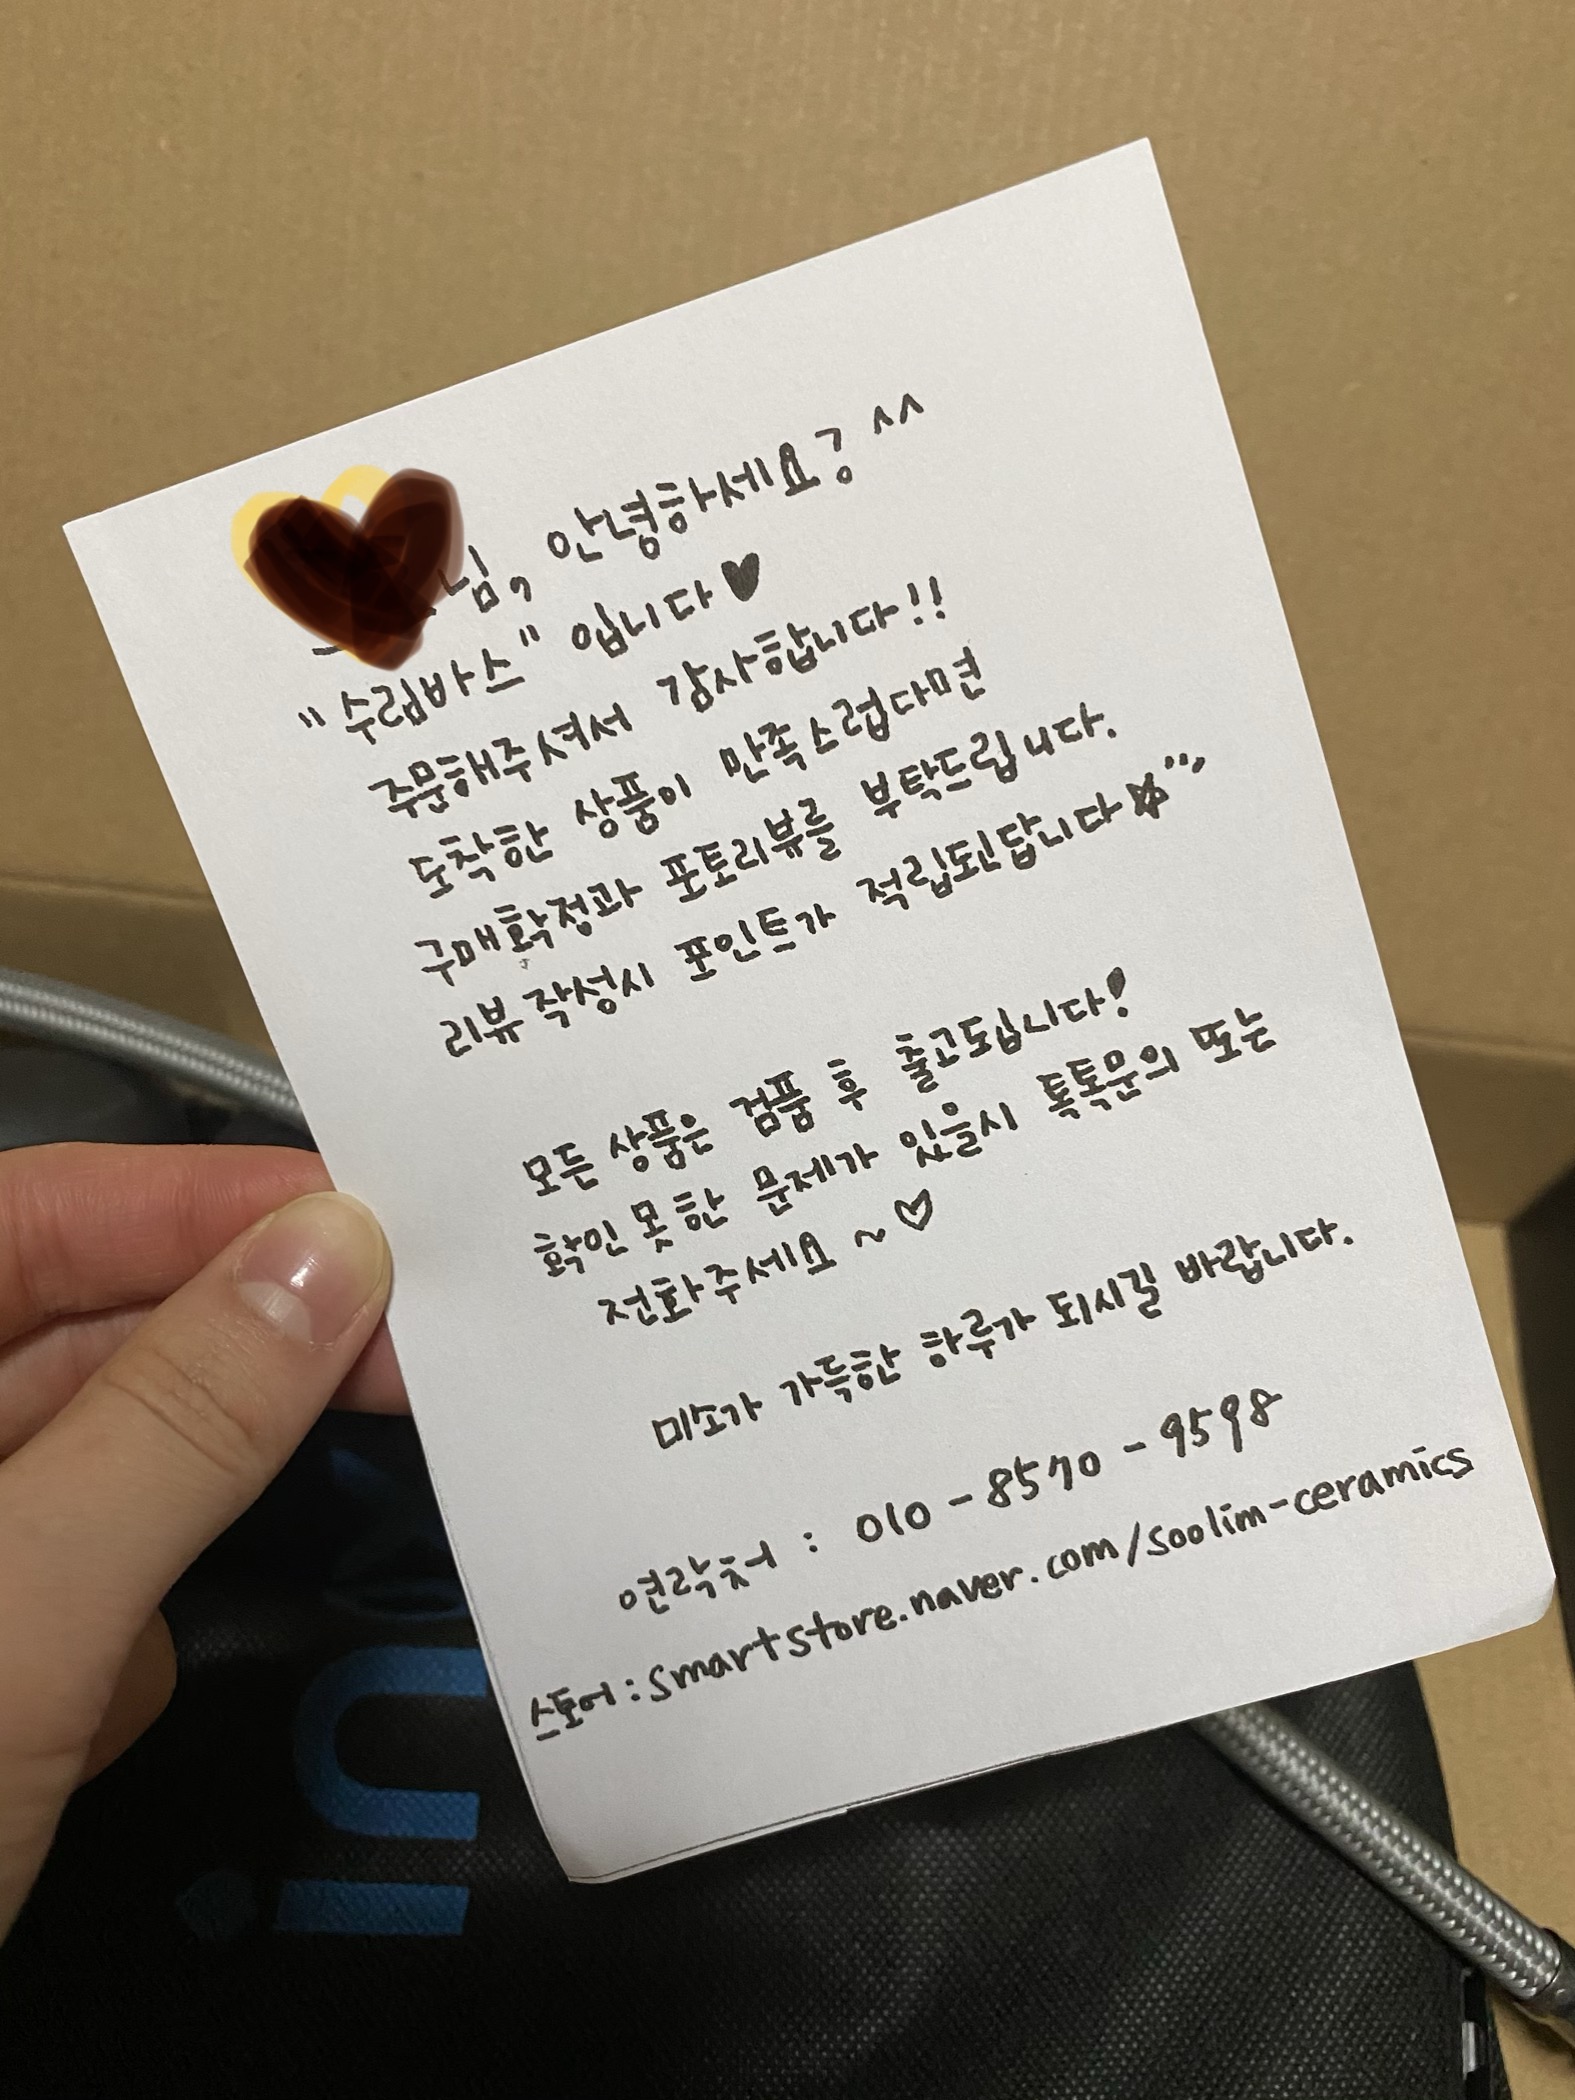 님, 안녕하세요? ^^
"수림바스" 입니다♥
주문해주셔서 감사합니다!!
도착한 상품이 만족스럽다면
구매확정과 포토리뷰를 부탁드립니다.
리뷰 작성시 포인트가 적립된답니다☆"
모든 상품은 검품 후 출고됩니다!
확인 못한 문제가 있을시 톡톡문의 또는
전화주세요 ~♡
미소가 가득한 하루가 되시길 바랍니다.
연락처 : 010-8570-9598
스토어 : smartstore.naver.com/soolim-ceramics